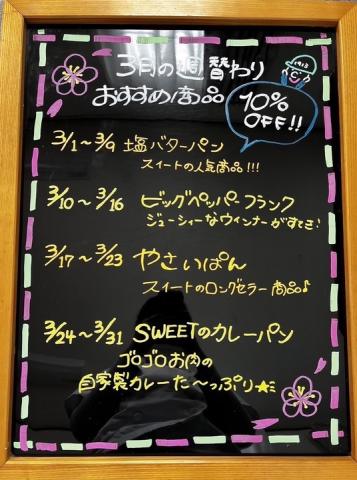 3月の週替わり
おすすめ商品
10%
OFF!!
1913
3/1～3/9 塩バターパン
スイートの人気商品!!!
3/10～3/16 ビッグペッパーフランク
ジューシィーなウインナーがすてき!
3/17～3/23 やさいぱん
スイートのロングセラー商品♪
3/24～3/31 SWEETのカレーパン
ゴロゴロお肉の
自家製カレーた〜っぷり★ミ